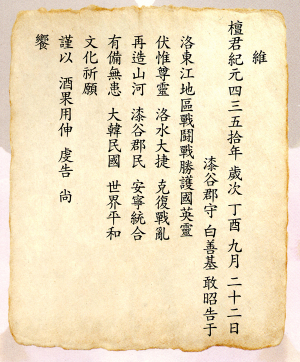 維
檀君紀元四三五十年 歲次 丁酉 九月 二十二日
漆谷郡守 白善基 敢昭告于
洛東江地區戰鬪戰勝護國英靈
伏惟尊靈 洛水大捷 克復戰亂
再造山河 漆谷郡民 安寧統合
有備無患 大韓民國 世界平和
文化祈願
謹以 酒果用伸 虔告 尙
饗